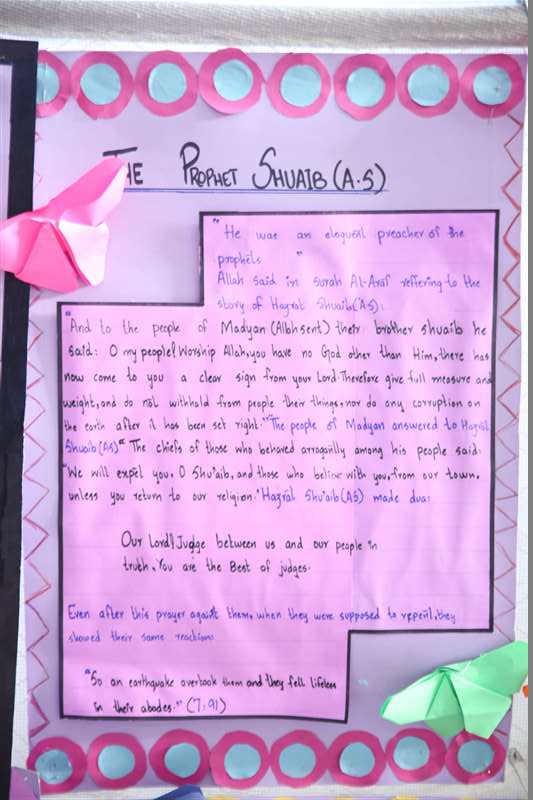 THE PROPHET SHUAIB (A.S)
"He was an eloquent preacher of the
prophets"
Allah said in surah Al-Araf reffering to the
story of Hazrat Shuaib(AS):
"And to the people of Madyan (Allah sent) their brother shuaib he
said: O my people! Worship Allah, you have no God other than Him, there has
now come to you a clear sign from your Lord. Therefore give full measure and
weight, and do not withhold from people their things, nor do any corruption on
the earth after it has been set right." "The people of Madyan answered to Hazrat
Shuaib(AS)" The chiefs of those who behaved arrogantly among his people said:
"We will expel you, O Shu'aib, and those who believe with you, from our town,
unless you return to our religion." Hazrat Shu'aib(AS) made dua:
Our Lord! Judge between us and our people in
truth, You are the Best of judges.
Even after this prayer against them, when they were supposed to repent, they
showed their same reactions
"So an earthquake overtook them and they fell lifeless
in their abodes." (7:91)